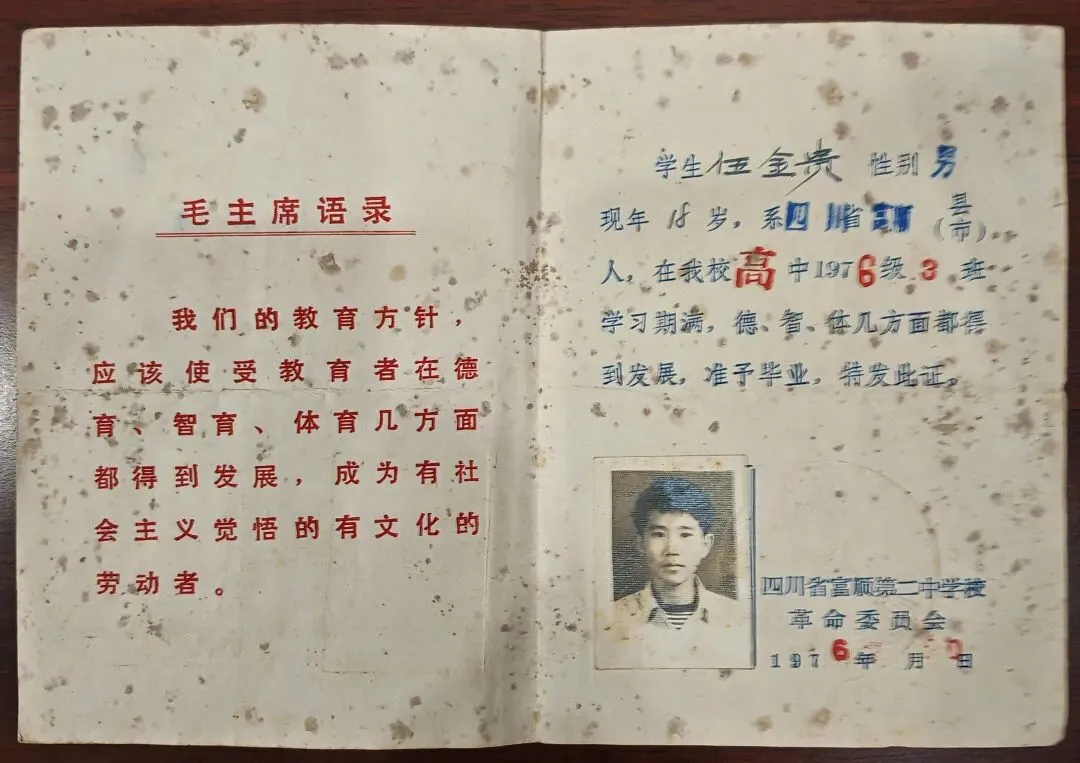 毛主席语录
我们的教育方针，
应该使受教育者在德
育、智育、体育几方面
都得到发展，成为有社
会主义觉悟的有文化的
劳动者。
学生伍金贵 性别男
现年18岁，系四川省 县
（市）
人，在我校高中1976级3班
学习期满，德、智、体几方面都得
到发展，准予毕业，特发此证。
四川省富顺第二中学校
革命委员会
1976年 月 日